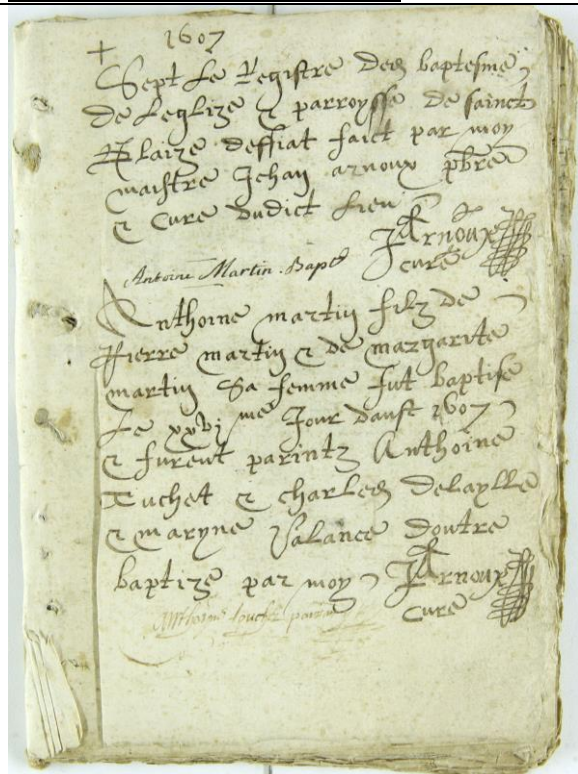 + 1607
Sept Le Registre des baptesme
de Leglize & parroysse de sainct
Blaize deffiat faict par moy
maistre Jehan arnoux pbre
& Cure dudict Lieu
JArnoux
cure
Antoine Martin. Bapt
Anthoine martin filz de
Pierre martin & de margarite
martin Sa femme fut baptise
Le xxvj me Jour daust 1607
& furent parintz Anthoine
Tuchet & charles delaylle
& maryne Valance doutre
baptize par moy JArnoux
cure